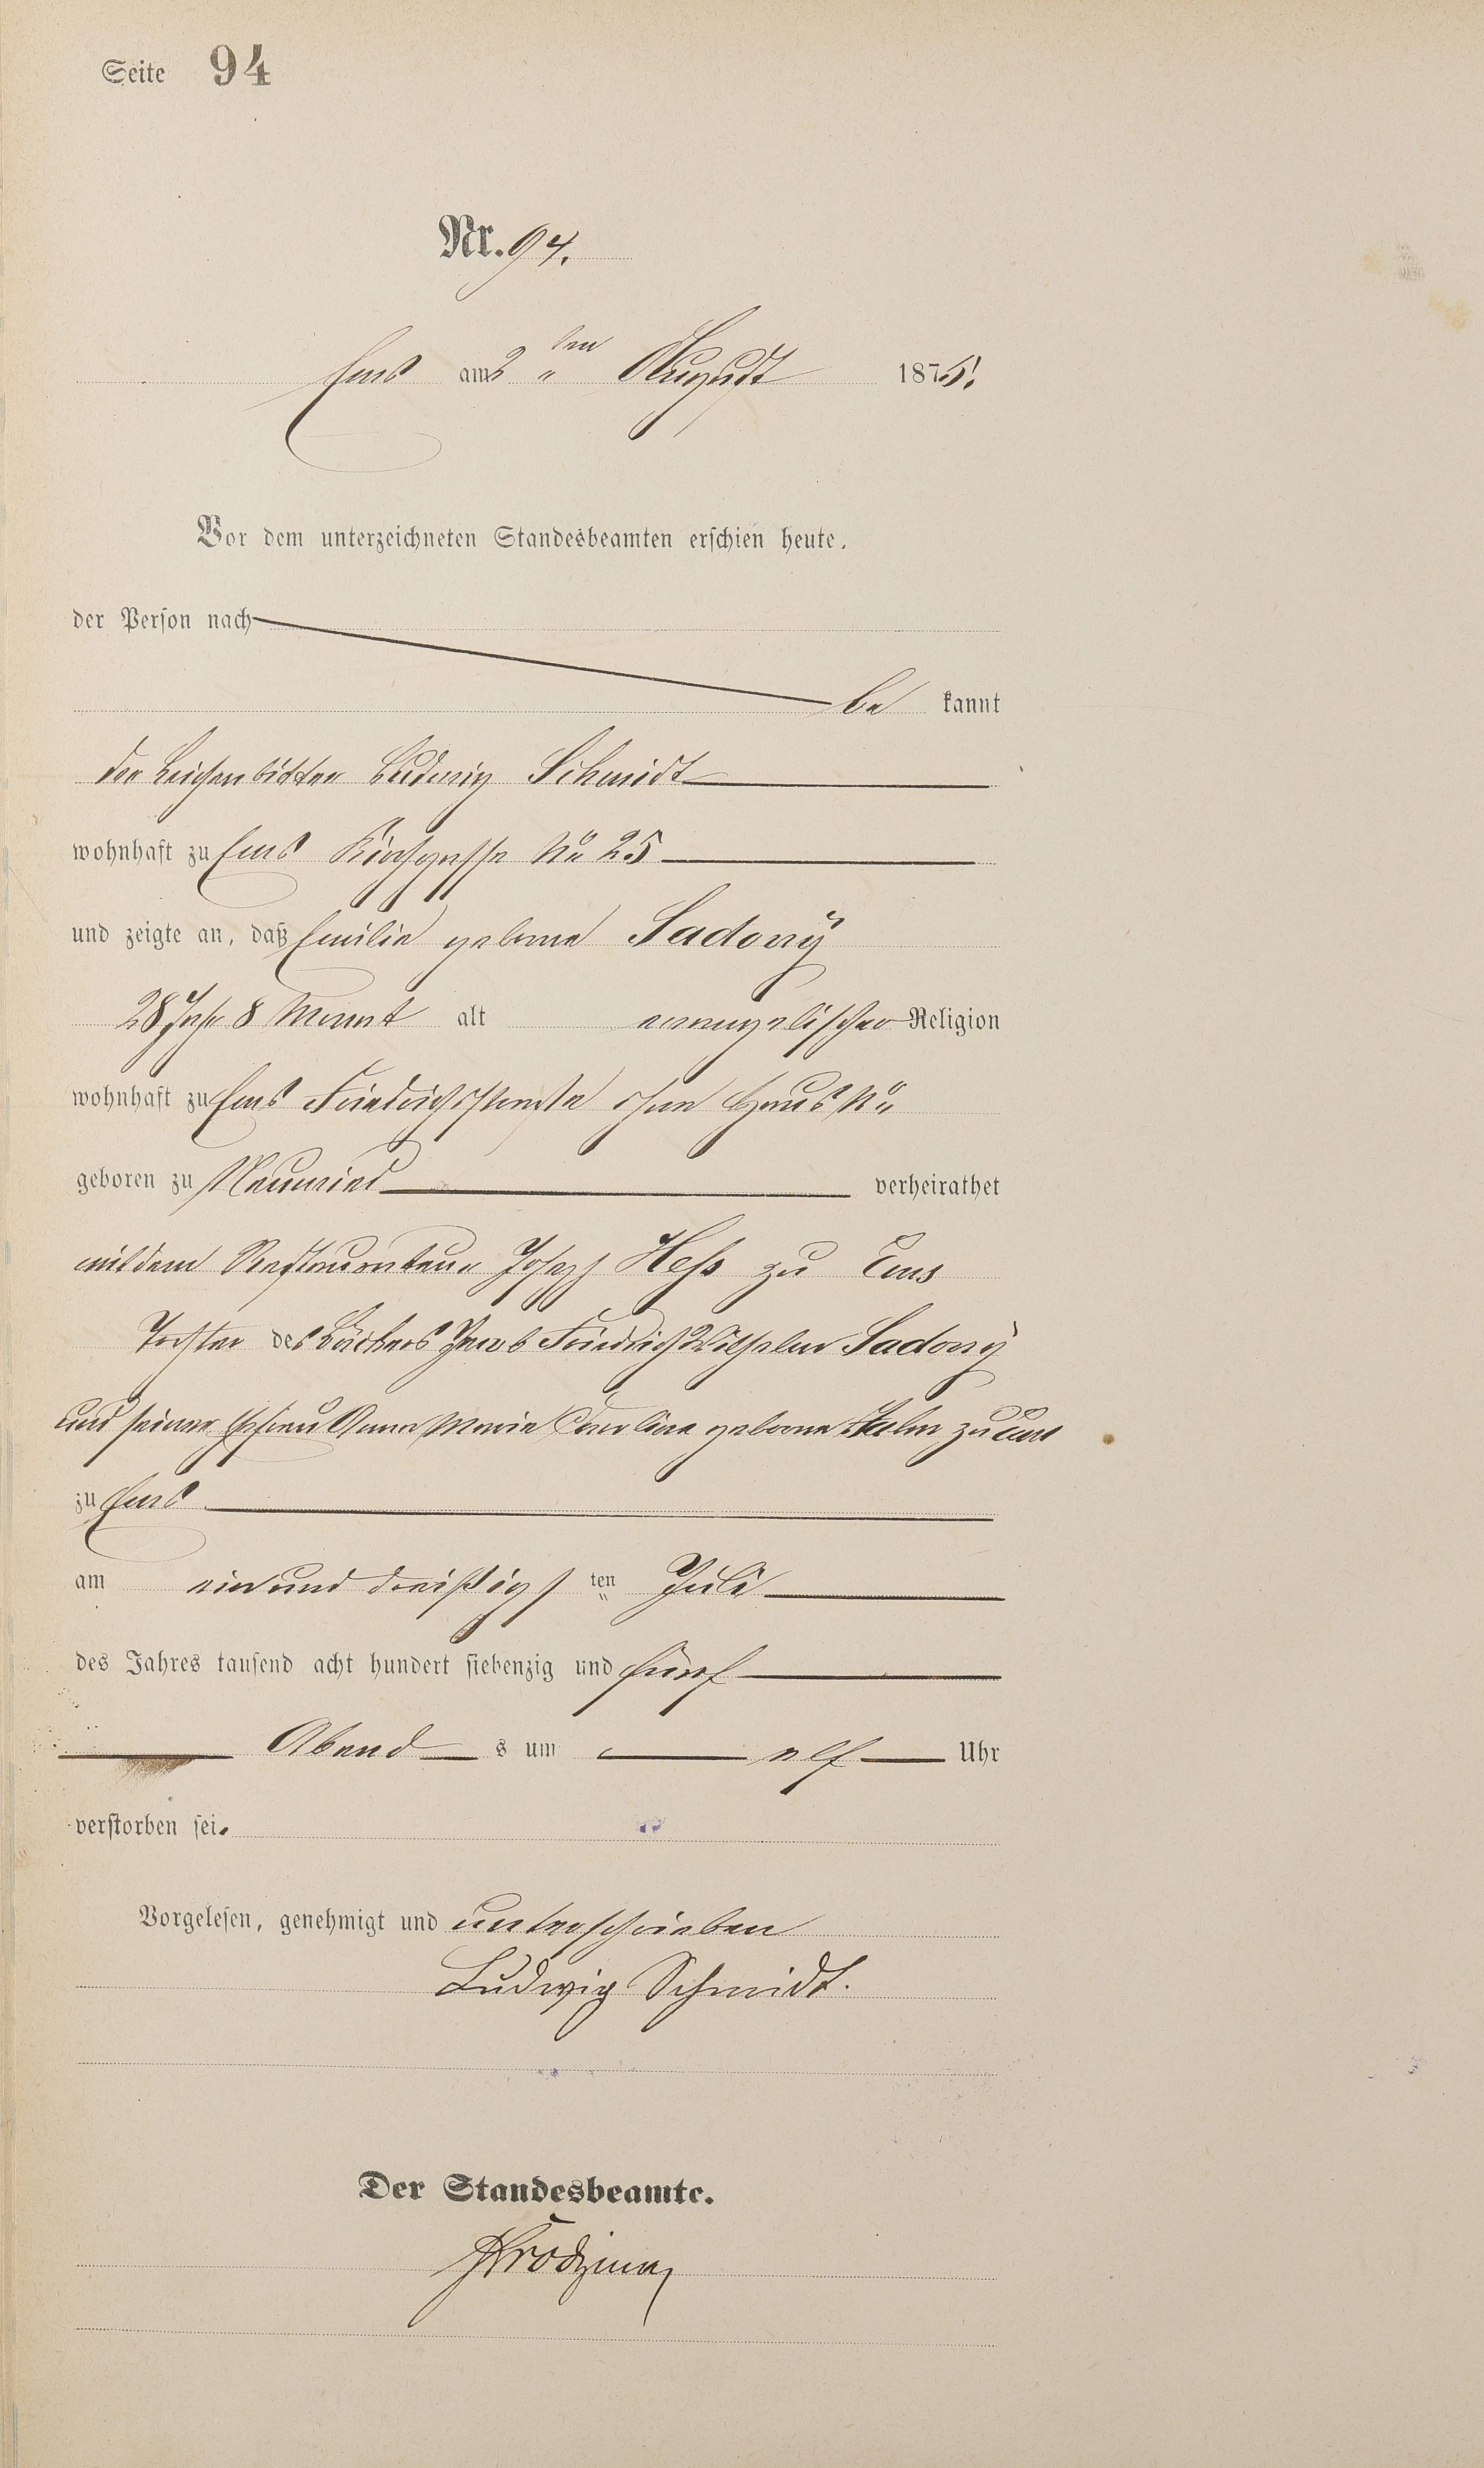 Seite 94
Nr. 94.
Ems am 2ten August 1875.
Vor dem unterzeichneten Standesbeamten erschien heute,
der Person nach
be kannt
der Leichenbitter Ludwig Schmidt
wohnhaft zu Ems Kirchgasse No 25
und zeigte an, daß Emilie geborne Sadony
28 Jahr 8 Monat alt evangelischer Religion
wohnhaft zu Ems Friedrichstraße ohne Haus No
geboren zu Neuwied verheirathet
mit dem Restaurateur Joseph Heß zu Ems
Tochter des Bäckers Jacob Friedrich Wilhelm Sadony
und seiner Ehefrau Anna Maria Caroline geborne zu Ems
zu Ems
am ein und dreißigsten Juli
des Jahres tausend acht hundert siebenzig und fünf
Abend s um elf Uhr
verstorben sei.
Vorgelesen, genehmigt und unterschrieben
Ludwig Schmidt.
Der Standesbeamte.